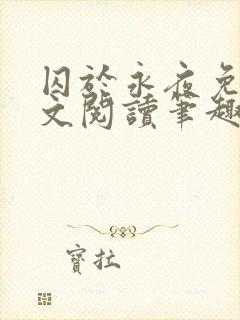 囚於永夜免
文閱讀筆趣
寶拉